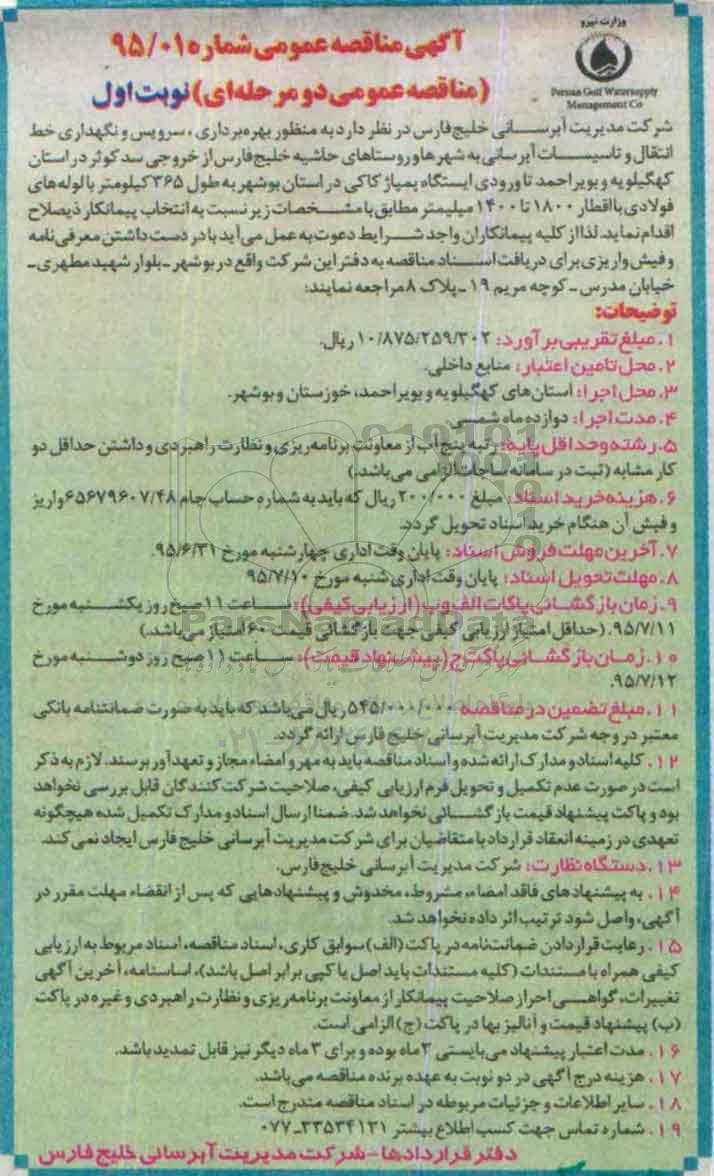 وزارت نیرو
Persian Gulf Watersupply
Management Co
آگهی مناقصه عمومی شماره ۹۵/۰۱
(مناقصه عمومی دو مرحله‌ای) نوبت اول
شرکت مدیریت آبرسانی خلیج‌فارس در نظر دارد به منظور بهره‌برداری، سرویس و نگهداری خط
انتقال و تاسیسات آبرسانی به شهرها و روستاهای حاشیه خلیج‌فارس از خروجی سد کوثر در استان
کهگیلویه و بویراحمد تا ورودی ایستگاه پمپاژ کاکی در استان بوشهر به طول ۳۶۵ کیلومتر با لوله‌های
فولادی با اقطار ۱۸۰۰ تا ۱۴۰۰ میلیمتر مطابق با مشخصات زیر نسبت به انتخاب پیمانکار ذیصلاح
اقدام نماید. لذا از کلیه پیمانکاران واجد شرایط دعوت به عمل می‌آید با در دست داشتن معرفی‌نامه
و فیش واریزی برای دریافت اسناد مناقصه به دفتر این شرکت واقع در بوشهر ـ بلوار شهید مطهری ـ
خیابان مدرس ـ کوچه مریم ۱۹ ـ پلاک ۸ مراجعه نمایند:
توضیحات:
۱. مبلغ تقریبی برآورد: ۱۰/۸۷۵/۲۵۹/۳۰۲ ریال.
۲. محل تامین اعتبار: منابع داخلی.
۳. محل اجرا: استان‌های کهگیلویه و بویراحمد، خوزستان و بوشهر.
۴. مدت اجرا: دوازده ماه شمسی.
۵. رشته و حداقل پایه: رتبه پنج آب از معاونت برنامه‌ریزی و نظارت راهبردی و داشتن حداقل دو
کار مشابه (ثبت در سامانه ساجات الزامی می‌باشد.)
۶. هزینه خرید اسناد: مبلغ ۲۰۰/۰۰۰ ریال که باید به شماره حساب جام ۶۵۶۷۹۶۰۷/۴۸ واریز
و فیش آن هنگام خرید اسناد تحویل گردد.
۷. آخرین مهلت فروش اسناد: پایان وقت اداری چهارشنبه مورخ ۹۵/۶/۳۱.
۸. مهلت تحویل اسناد: پایان وقت اداری شنبه مورخ ۹۵/۷/۱۰
۹. زمان بازگشائی پاکات الف و ب (ارزیابی کیفی): ساعت ۱۱ صبح روز یکشنبه مورخ
۹۵/۷/۱۱. (حداقل امتیاز ارزیابی کیفی جهت بازگشائی قیمت ۶۰ امتیاز می‌باشد.)
۱۰. زمان بازگشائی پاکت ج (پیشنهاد قیمت): ساعت ۱۱ صبح روز دوشنبه مورخ
۹۵/۷/۱۲.
۱۱. مبلغ تضمین در مناقصه ۵۴۵/۰۰۰/۰۰۰ ریال می‌باشد که باید به صورت ضمانتنامه بانکی
معتبر در وجه شرکت مدیریت آبرسانی خلیج فارس ارائه گردد.
۱۲. کلیه اسناد و مدارک ارائه شده و اسناد مناقصه باید به مهر و امضاء مجاز و تعهدآور برسند. لازم به ذکر
است در صورت عدم تکمیل و تحویل فرم ارزیابی کیفی، صلاحیت شرکت کنندگان قابل بررسی نخواهد
بود و پاکت پیشنهاد قیمت بازگشائی نخواهد شد. ضمنا ارسال اسناد و مدارک تکمیل شده هیچگونه
تعهدی در زمینه انعقاد قرارداد با متقاضیان برای شرکت مدیریت آبرسانی خلیج فارس ایجاد نمی‌کند.
۱۳. دستگاه نظارت: شرکت مدیریت آبرسانی خلیج‌فارس.
۱۴. به پیشنهادهای فاقد امضاء، مشروط، مخدوش و پیشنهادهایی که پس از انقضاء مهلت مقرر در
آگهی، واصل شود ترتیب اثر داده نخواهد شد.
۱۵. رعایت قرار دادن ضمانت‌نامه در پاکت (الف) سوابق کاری، اسناد مناقصه، اسناد مربوط به ارزیابی
کیفی همراه با مستندات (کلیه مستندات باید اصل یا کپی برابر اصل باشد)، اساسنامه، آخرین آگهی
تغییرات، گواهی احراز صلاحیت پیمانکار از معاونت برنامه‌ریزی و نظارت راهبردی و غیره در پاکت
(ب) پیشنهاد قیمت و آنالیز بها در پاکت (ج) الزامی است.
۱۶. مدت اعتبار پیشنهاد می‌بایستی ۳ ماه بوده و برای ۳ ماه دیگر نیز قابل تمدید باشد.
۱۷. هزینه درج آگهی در دو نوبت به عهده برنده مناقصه می‌باشد.
۱۸. سایر اطلاعات و جزئیات مربوطه در اسناد مناقصه مندرج است.
۱۹. شماره تماس جهت کسب اطلاع بیشتر ۳۳۵۳۴۱۳۱-۰۷۷
دفتر قراردادها - شرکت مدیریت آبرسانی خلیج فارس
ParsNamadData